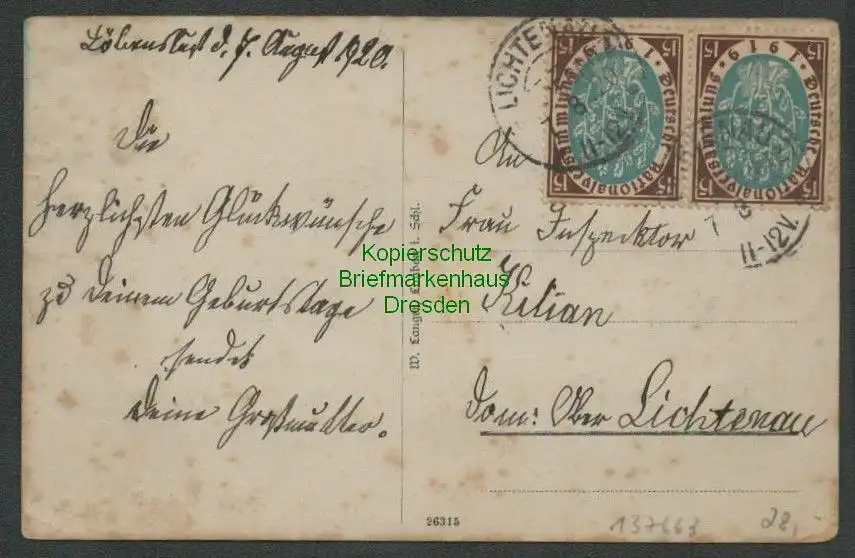 d. 7. August 1920.
Die
herzlichsten Glückwünsche
zu Deinem Geburtstage
sendet
Deine Großmutter.
An
Frau Inspektor
Kilian
Dom: Ober Lichtenau
Kopierschutz
Briefmarkenhaus
Dresden
W. Lange, i. Schl.
26315
137663
28,-
LICHTENAU
8
11-12V.
15 15
1919 * Deutsche Nationalversammlung *
15 15
15 15
1919 * Deutsche Nationalversammlung *
15 15
7 8
11-12V.